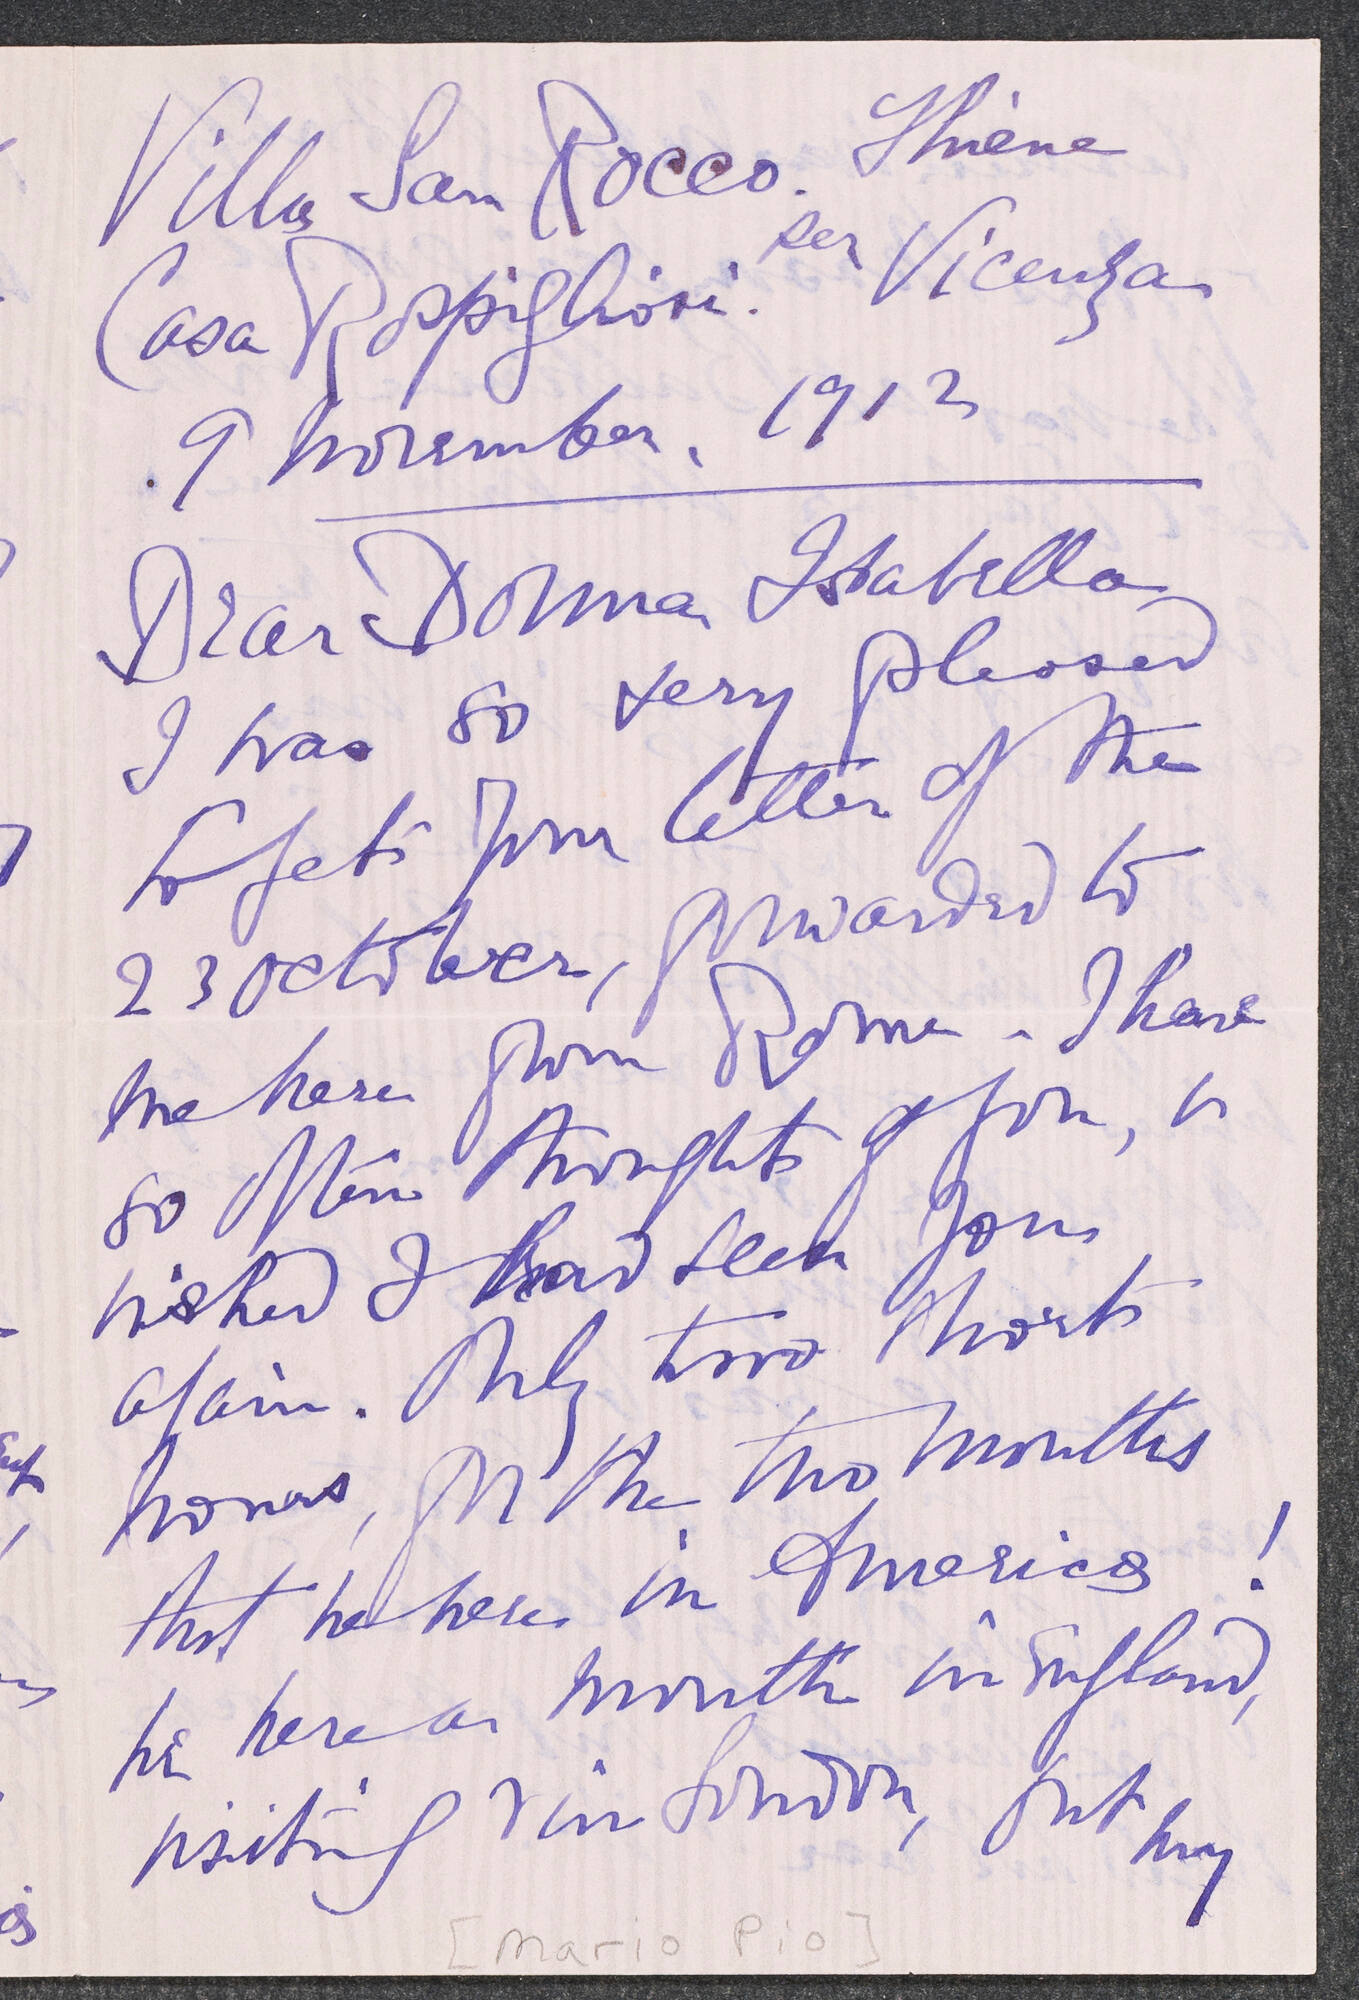 Villa San Rocco. Thiene
Casa Rospigliosi. per Vicenza
9 November. 1912
Dear Donna Isabella
I was so very pleased
to get your letter of the
23 October, forwarded to
me here from Rome. I have
so often thought of you, &
wished I had seen you
again. Only two short
hours, for the two months
that we were in America!
We were a month in England,
visiting & in London, but my
[Mario Pio]